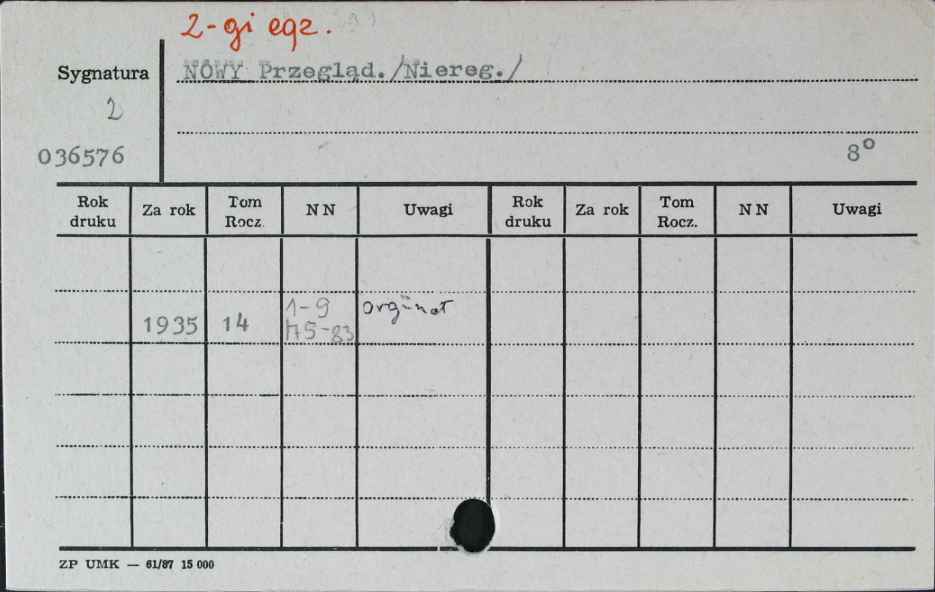 2-gi egz.
Sygnatura
NOWY Przegląd./Niereg./
2
036576
8°
Rok druku Za rok Tom Rocz. NN Uwagi Rok druku Za rok Tom Rocz. NN Uwagi
1935 14 1-9 75-83
ZP UMK — 61/87 15 000